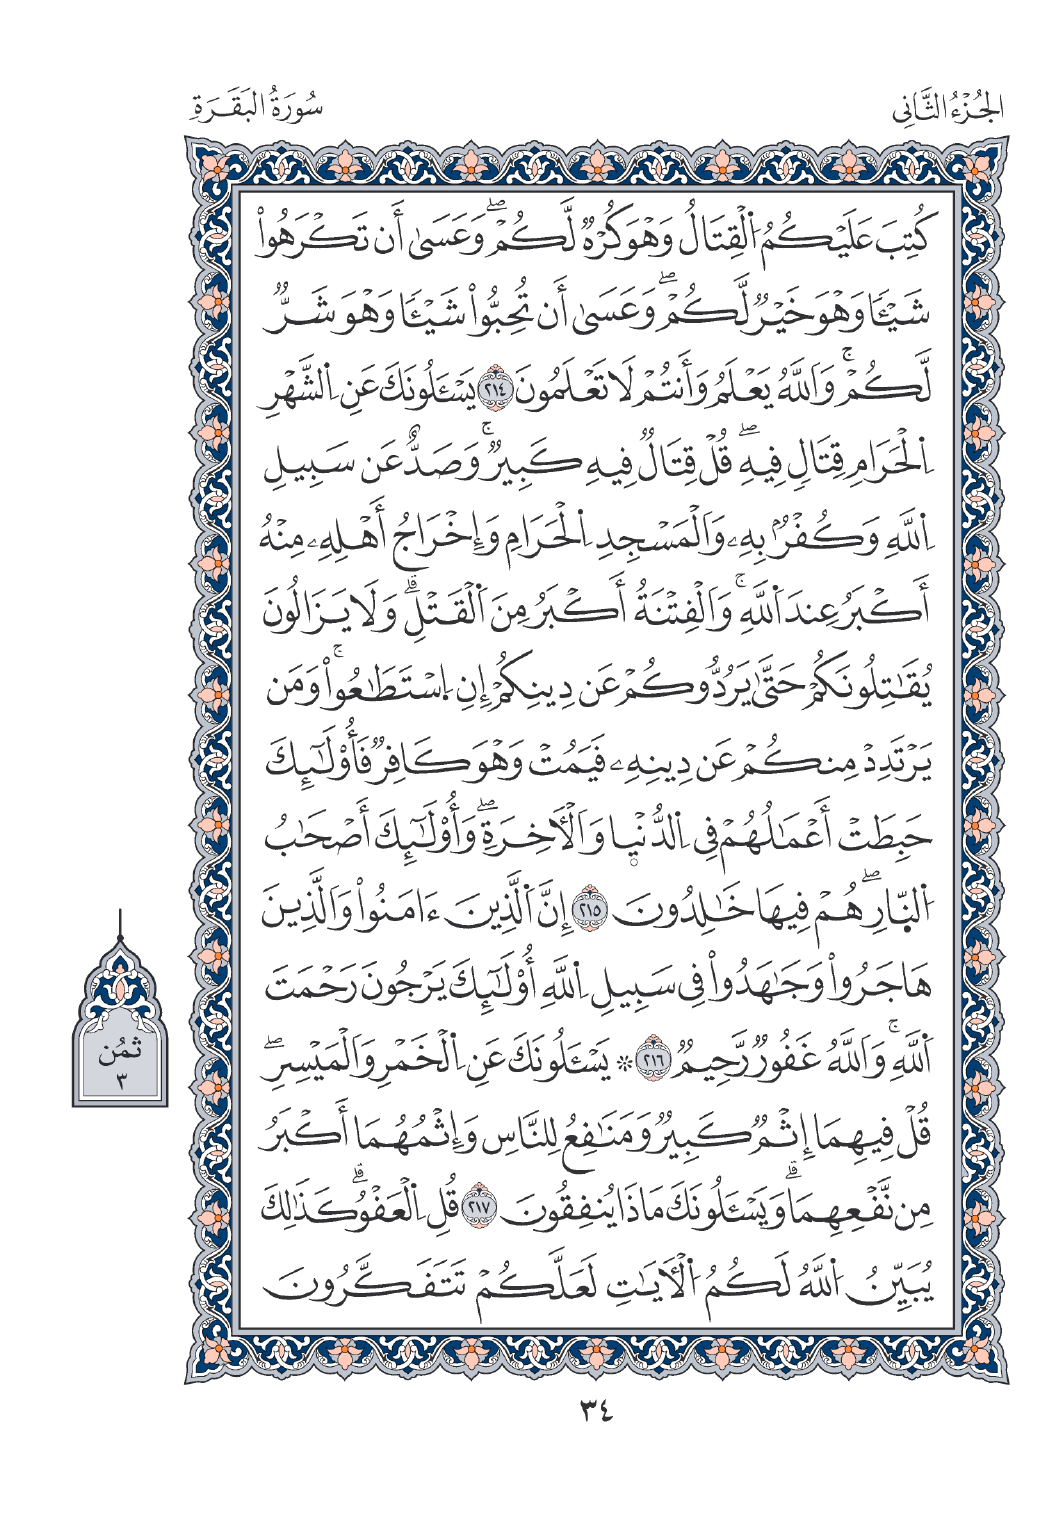 الجُزْءُ الثَّانِى
سُورَةُ البَقَرَةِ
كُتِبَ عَلَيْكُمُ اُ۬لْقِتَالُ وَهْوَ كُرْهٞ لَّكُمْۖ وَعَسَىٰ أَن تَكْرَهُواْ
شَيْـٔٗا وَهْوَ خَيْرٞ لَّكُمْۖ وَعَسَىٰ أَن تُحِبُّواْ شَيْـٔٗا وَهْوَ شَرّٞ
لَّكُمْۚ وَاَللَّهُ يَعْلَمُ وَأَنتُمْ لَا تَعْلَمُونَ ٢١٤ يَسْـَٔلُونَكَ عَنِ اِ۬لشَّهْرِ
اِ۬لْحَرَامِ قِتَالٖ فِيهِۖ قُلْ قِتَالٞ فِيهِ كَبِيرٞۚ وَصَدٌّ عَن سَبِيلِ
اِ۬للَّهِ وَكُفْرُۢ بِهِۦ وَاَلْمَسْجِدِ اِ۬لْحَرَامِ وَإِخْرَاجُ أَهْلِهِۦ مِنْهُ
أَكْبَرُ عِندَ اَ۬للَّهِۚ وَاَلْفِتْنَةُ أَكْبَرُ مِنَ اَ۬لْقَتْلِۗ وَلَا يَزَالُونَ
يُقَٰتِلُونَكُمْ حَتَّىٰ يَرُدُّوكُمْ عَن دِينِكُمْ إِنِ اِ۪سْتَطَٰعُواْۚ وَمَن
يَرْتَدِدْ مِنكُمْ عَن دِينِهِۦ فَيَمُتْ وَهْوَ كَافِرٞ فَأُوْلَٰٓئِكَ
حَبِطَتْ أَعْمَٰلُهُمْ فِى اِ۬لدُّنْيۭا وَاَلْأٓخِرَةِۖ وَأُوْلَٰٓئِكَ أَصْحَٰبُ
اُ۬لنّ۪ارِۖ هُمْ فِيهَا خَٰلِدُونَ ٢١٥ إِنَّ اَ۬لَّذِينَ ءَامَنُواْ وَالَّذِينَ
هَاجَرُواْ وَجَٰهَدُواْ فِى سَبِيلِ اِ۬للَّهِ أُوْلَٰٓئِكَ يَرْجُونَ رَحْمَتَ
اَ۬للَّهِۚ وَاَللَّهُ غَفُورٞ رَّحِيمٞ ٢١٦ ۞ يَسْـَٔلُونَكَ عَنِ اِ۬لْخَمْرِ وَالْمَيْسِرِۖ
ثُمُن
٣
قُلْ فِيهِمَا إِثْمٞ كَبِيرٞ وَمَنَٰفِعُ لِلنَّاسِ وَإِثْمُهُمَا أَكْبَرُ
مِن نَّفْعِهِمَاۗ وَيَسْـَٔلُونَكَ مَاذَا يُنفِقُونَ ٢١٧ قُلِ اِ۬لْعَفْوُۗ كَذَٰلِكَ
يُبَيِّنُ اُ۬للَّهُ لَكُمُ اُ۬لْأٓيَٰتِ لَعَلَّكُمْ تَتَفَكَّرُونَ
٣٤